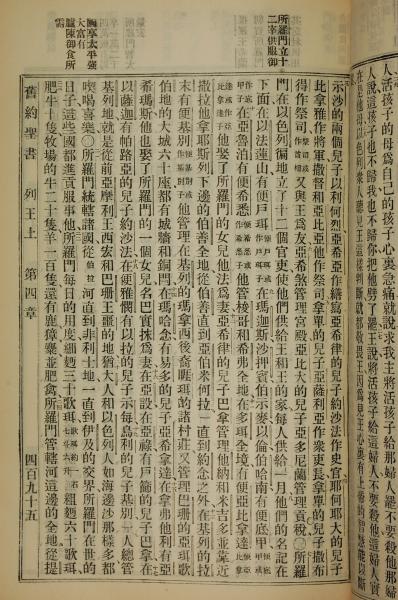 人活孩子的母爲自己的孩子心裏急痛就說求我主將活孩子給那婦人罷不要殺他那婦
人說這孩子也不歸我也不歸你把他劈了罷王說將活孩子給這婦人不要殺他這婦人實
在是他母親以色列衆人聽見王這樣判斷就都敬畏王因爲見王心裏有上帝的智慧能以斷
所羅門立十
二宰供御
太平強
大富有
陳御食所
需
示沙的兩個兒子以利何烈亞希亞作繕寫亞希律的兒子約沙法作史官耶何耶大的兒子
比拿雅作將軍撒督和亞比亞他作祭司拿單的兒子亞薩利亞作衆吏長拿單的兒子撒布
得作祭司又與王爲友亞希煞管理宮殿亞比大的兒子亞多尼蘭管理貢稅○所羅
門在以色列徧地立了十二個官吏使他們供給王和王的家每人供給一月他們的名記在
下面在以法蓮山有便戶珥在瑪迦斯沙押賓伯示麥以倫伯哈南有便底甲
在亞魯泊有便希悉他管梭哥和希弗全地在多珥全境有便亞比拿達
他娶了所羅門的女兒他法爲妻亞希律的兒子巴拿管理他納和米吉多並靠近
撒拉他拿耶斯列下邊的伯善全地從伯善直到亞伯米何拉一直到約念之外在基列的拉
末有便基別他管理在基列的瑪拿西後裔睚珥的諸村莊又管理巴珊的亞珥歌
伯地的大城六十座都有城牆和銅門在瑪哈念有易多的兒子亞希拿達在拿弗他利有亞
希瑪斯他也娶了所羅門的一個女兒名巴實抹爲妻在亞設在亞祿有戶篩的兒子巴拿在
以薩迦有帕路亞的兒子約沙法在便雅憫有以拉的兒子示每烏利的兒子基別一人總管
基列地就是從前亞摩利王西宏和巴珊王噩的地猶大人和以色列人如海邊沙那樣多都
喫喝喜樂○所羅門統轄諸國從伯拉河直到非利士地一直到伊及的交界所羅門在世的
日子這些國都進貢服事他所羅門每日的用度細麵三十歌珥粗麵六十歌珥
肥牛十隻牧場的牛二十隻羊一百隻還有鹿獐麋並肥禽所羅門管轄河這邊的全地從提
舊約聖書 列王上 第四章 四百九十五